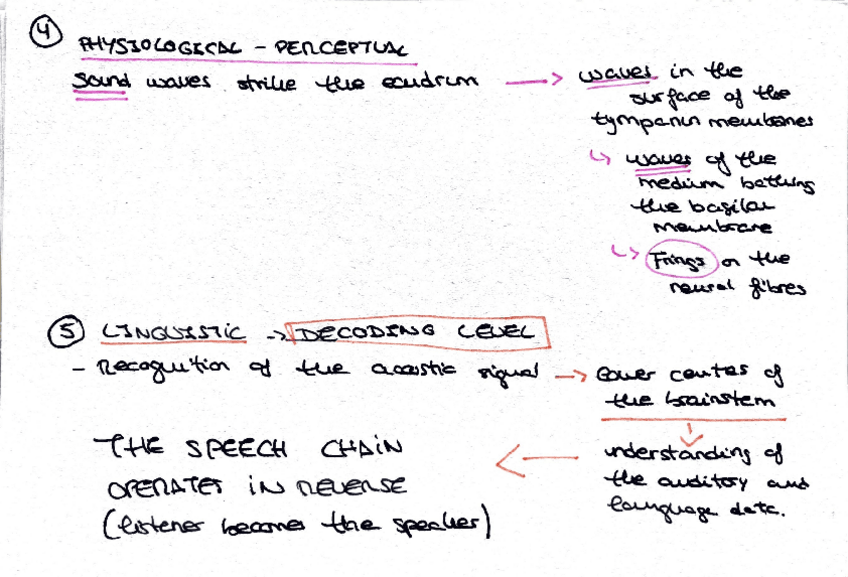 4 PHYSIOLOGICAL - PERCEPTUAL
Sound waves strike the eardrum → waves in the
surface of the
tympanin membranes
↳ waves of the
medium bathing
the basilar
membrane
↳ Firings on the
neural fibres
5 LINGUISTIC → DECODING LEVEL
- Recognition of the acoustic signal → lower centres of
the brainstem
THE SPEECH CHAIN
OPERATES IN REVERSE
(listener becomes the speaker)
understanding of
the auditory and
language data.